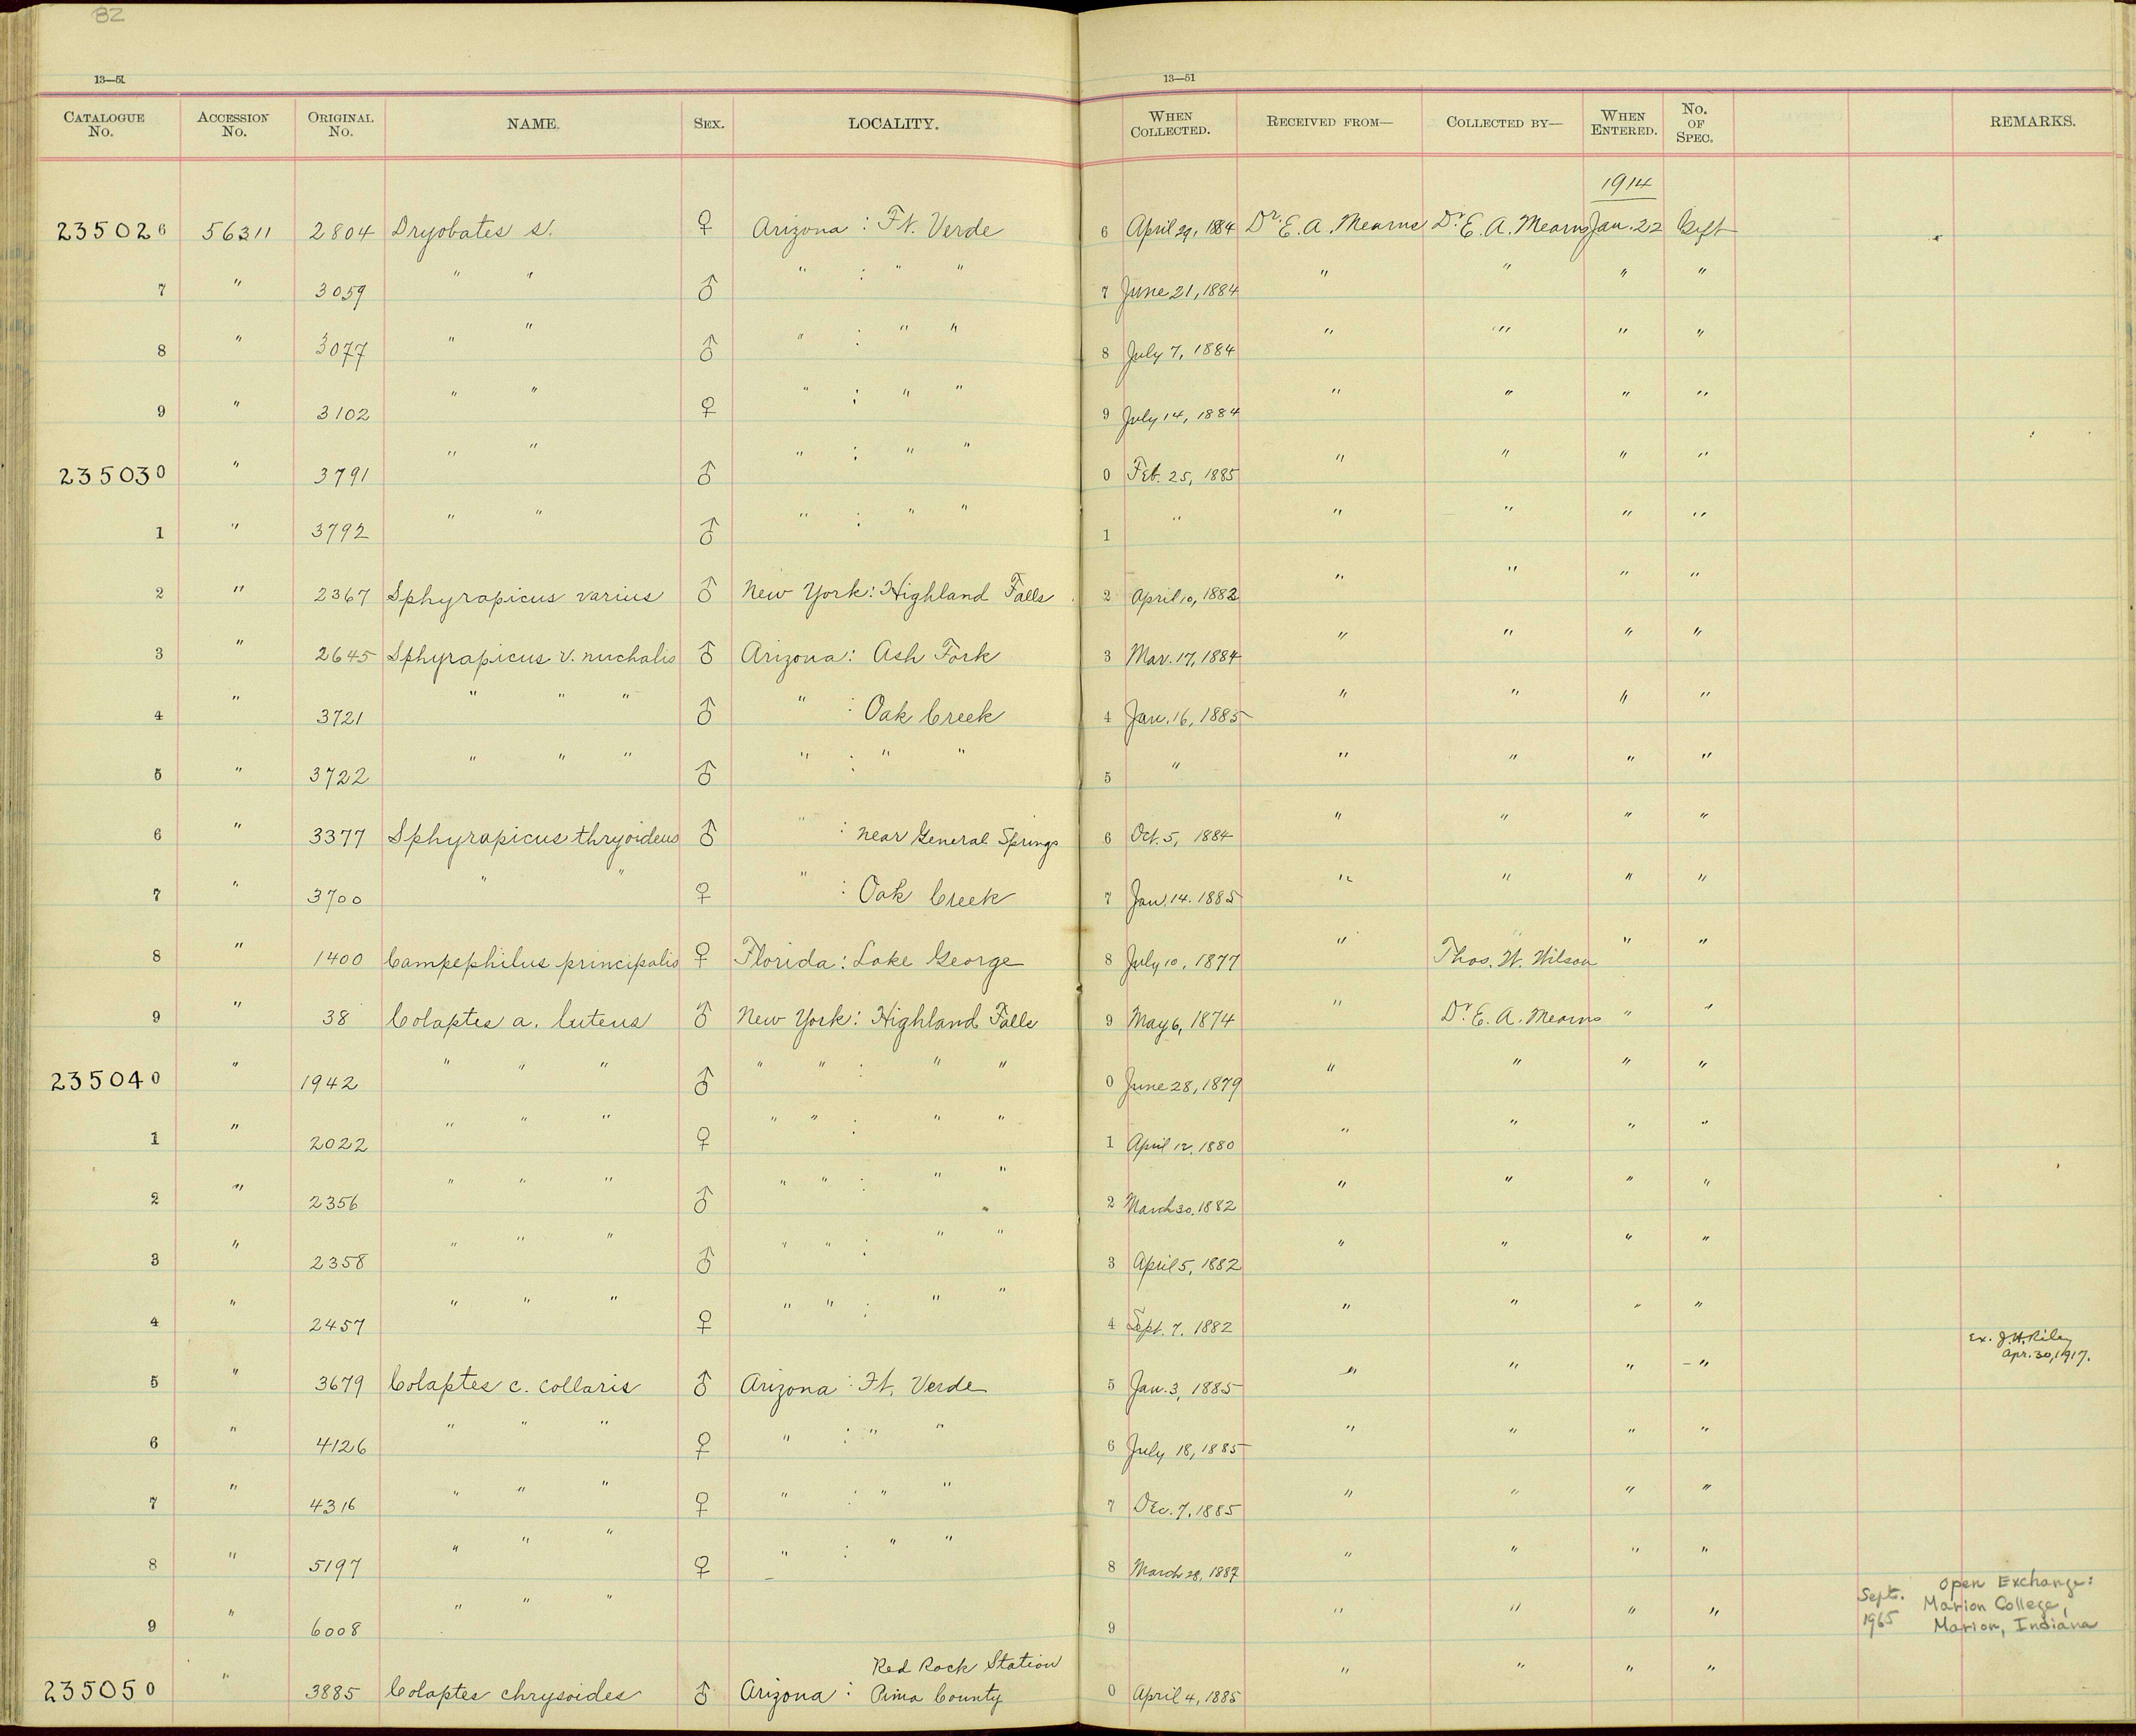 82
13—51 13—51
CATALOGUE No. ACCESSION No. ORIGINAL No. NAME. SEX. LOCALITY. WHEN COLLECTED. RECEIVED FROM— COLLECTED BY— WHEN ENTERED. No. OF SPEC. REMARKS.
1914
235026 56311 2804 Dryobates s. ♀ Arizona : Ft. Verde 6 April 29, 1884 Dr. E. A. Mearns Dr. E. A. Mearns Jan. 22 Gift
7 " 3059 " " ♂ " : " " 7 June 21, 1884 " " " "
8 " 3077 " " ♂ " : " " 8 July 7, 1884 " " " "
9 " 3102 " " ♀ " : " " 9 July 14, 1884 " " " "
235030 " 3791 " " ♂ " : " " 0 Feb. 25, 1885 " " " "
1 " 3792 " " ♂ " : " " 1 " " " " "
2 " 2367 Sphyrapicus varius ♂ New York: Highland Falls 2 April 10, 1882 " " " "
3 " 2645 Sphyrapicus v. nuchalis ♂ Arizona: Ash Fork 3 Mar. 17, 1884 " " " "
4 " 3721 " " " ♂ " : Oak Creek 4 Jan. 16, 1885 " " " "
5 " 3722 " " " ♂ " : " " 5 " " " " "
6 " 3377 Sphyrapicus thryoideus ♂ " : near General Springs 6 Oct. 5, 1884 " " " "
7 " 3700 " " ♀ " : Oak Creek 7 Jan. 14. 1885 " " " "
8 " 1400 Campephilus principalis ♀ Florida: Lake George 8 July 10, 1877 " Thos. W. Wilson " "
9 " 38 Colaptes a. luteus ♂ New York: Highland Falls 9 May 6, 1874 " Dr. E. A. Mearns " "
235040 " 1942 " " " ♂ " " : " " 0 June 28, 1879 " " " "
1 " 2022 " " " ♀ " " : " " 1 April 12, 1880 " " " "
2 " 2356 " " " ♂ " " : " " 2 March 30, 1882 " " " "
3 " 2358 " " " ♂ " " : " " 3 April 5, 1882 " " " "
4 " 2457 " " " ♀ " " : " " 4 Sept. 7. 1882 " " " "
Ex. J.H. Riley
Apr. 30, 1917.
5 " 3679 Colaptes c. collaris ♂ Arizona : Ft. Verde 5 Jan. 3, 1885 " " " – "
6 " 4126 " " " ♀ " : " " 6 July 18, 1885 " " " "
7 " 4316 " " " ♀ " : " " 7 Dec. 7, 1885 " " " "
8 " 5197 " " " ♀ " : " " 8 March 28, 1887 " " " "
Open Exchange:
Sept. Marion College,
1965 Marion, Indiana
9 " 6008 " " " 9 " " " "
Red Rock Station
235050 " 3885 Colaptes chrysoides ♂ Arizona : Pima County 0 April 4, 1885 " " " "